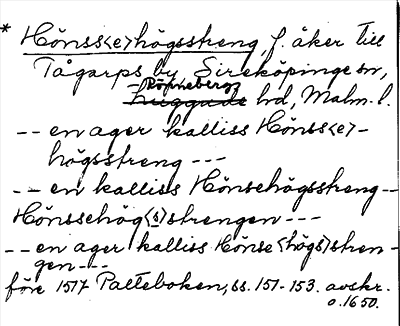 * Hönss<e>högsstreng, f. åker till
Tågarps by Sireköpinge sn,
Rönneberg
Luggude hd, Malm. l.
-- en ager kalliss Hönss<e>-
högsstreng ---
-- en kalliss Hönsehögsstreng --
Hönssehög<s>strengen ---
-- en ager kalliss Hönse<högs>stren-
gen ---
före 1517 Palteboken, ss. 151-153. avskr.
o. 1650.